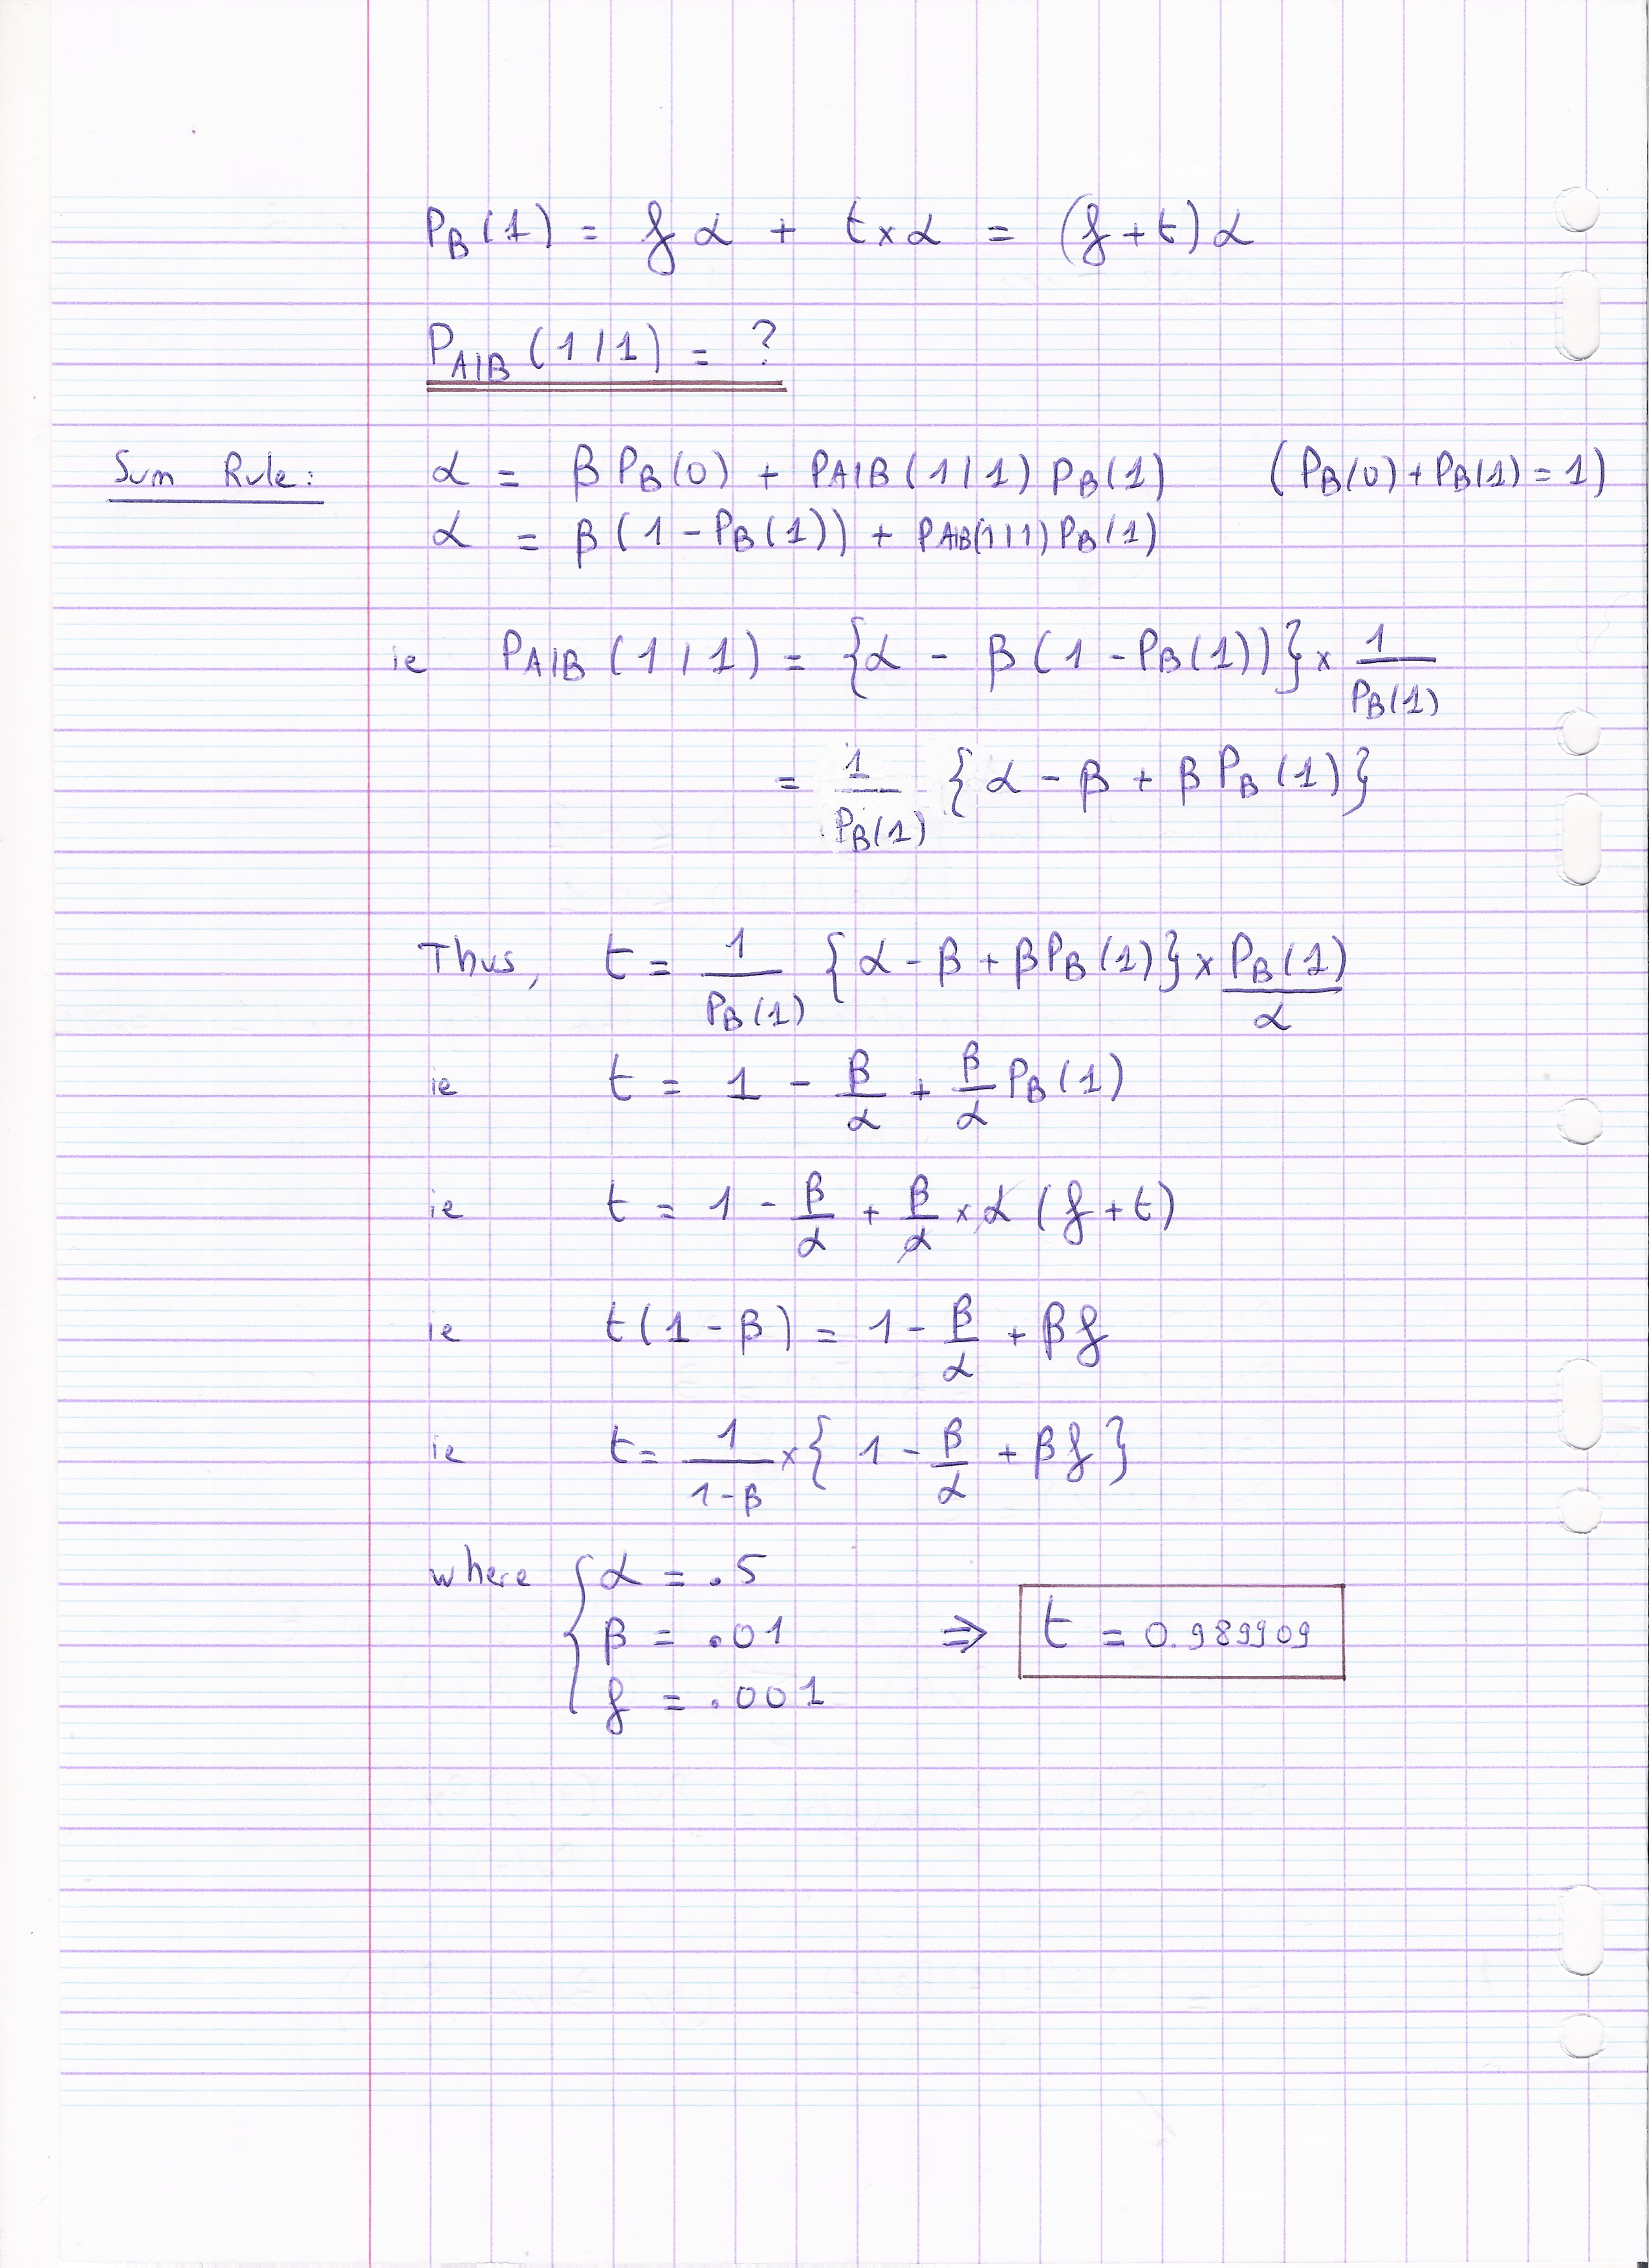 P_B(1) = f α + t × α = (f + t) α
P_A|B (1|1) = ?
Sum Rule: α = β P_B(0) + P_A|B(1|1) P_B(1) (P_B(0) + P_B(1) = 1)
α = β (1 - P_B(1)) + P_A|B(1|1) P_B(1)
ie P_A|B (1|1) = {α - β (1 - P_B(1))} × 1/P_B(1)
= 1/P_B(1) {α - β + β P_B(1)}
Thus, t = 1/P_B(1) {α - β + β P_B(1)} × P_B(1)/α
ie t = 1 - β/α + β/α P_B(1)
ie t = 1 - β/α + β/α × α (f + t)
ie t(1 - β) = 1 - β/α + β f
ie t = 1/(1-β) × { 1 - β/α + β f }
where { α = .5
β = .01 ⇒ t = 0.989909
f = .001